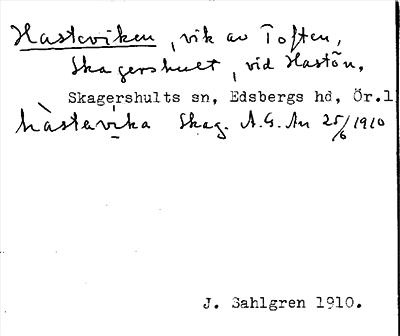 Hasteviken, vik av Toften,
Skagershult, vid Hastön,
Skagershults sn, Edsbergs hd, Ör.l
hàstavı̣ka Skag. A.G. An 25/6 1910
J. Sahlgren 1910.